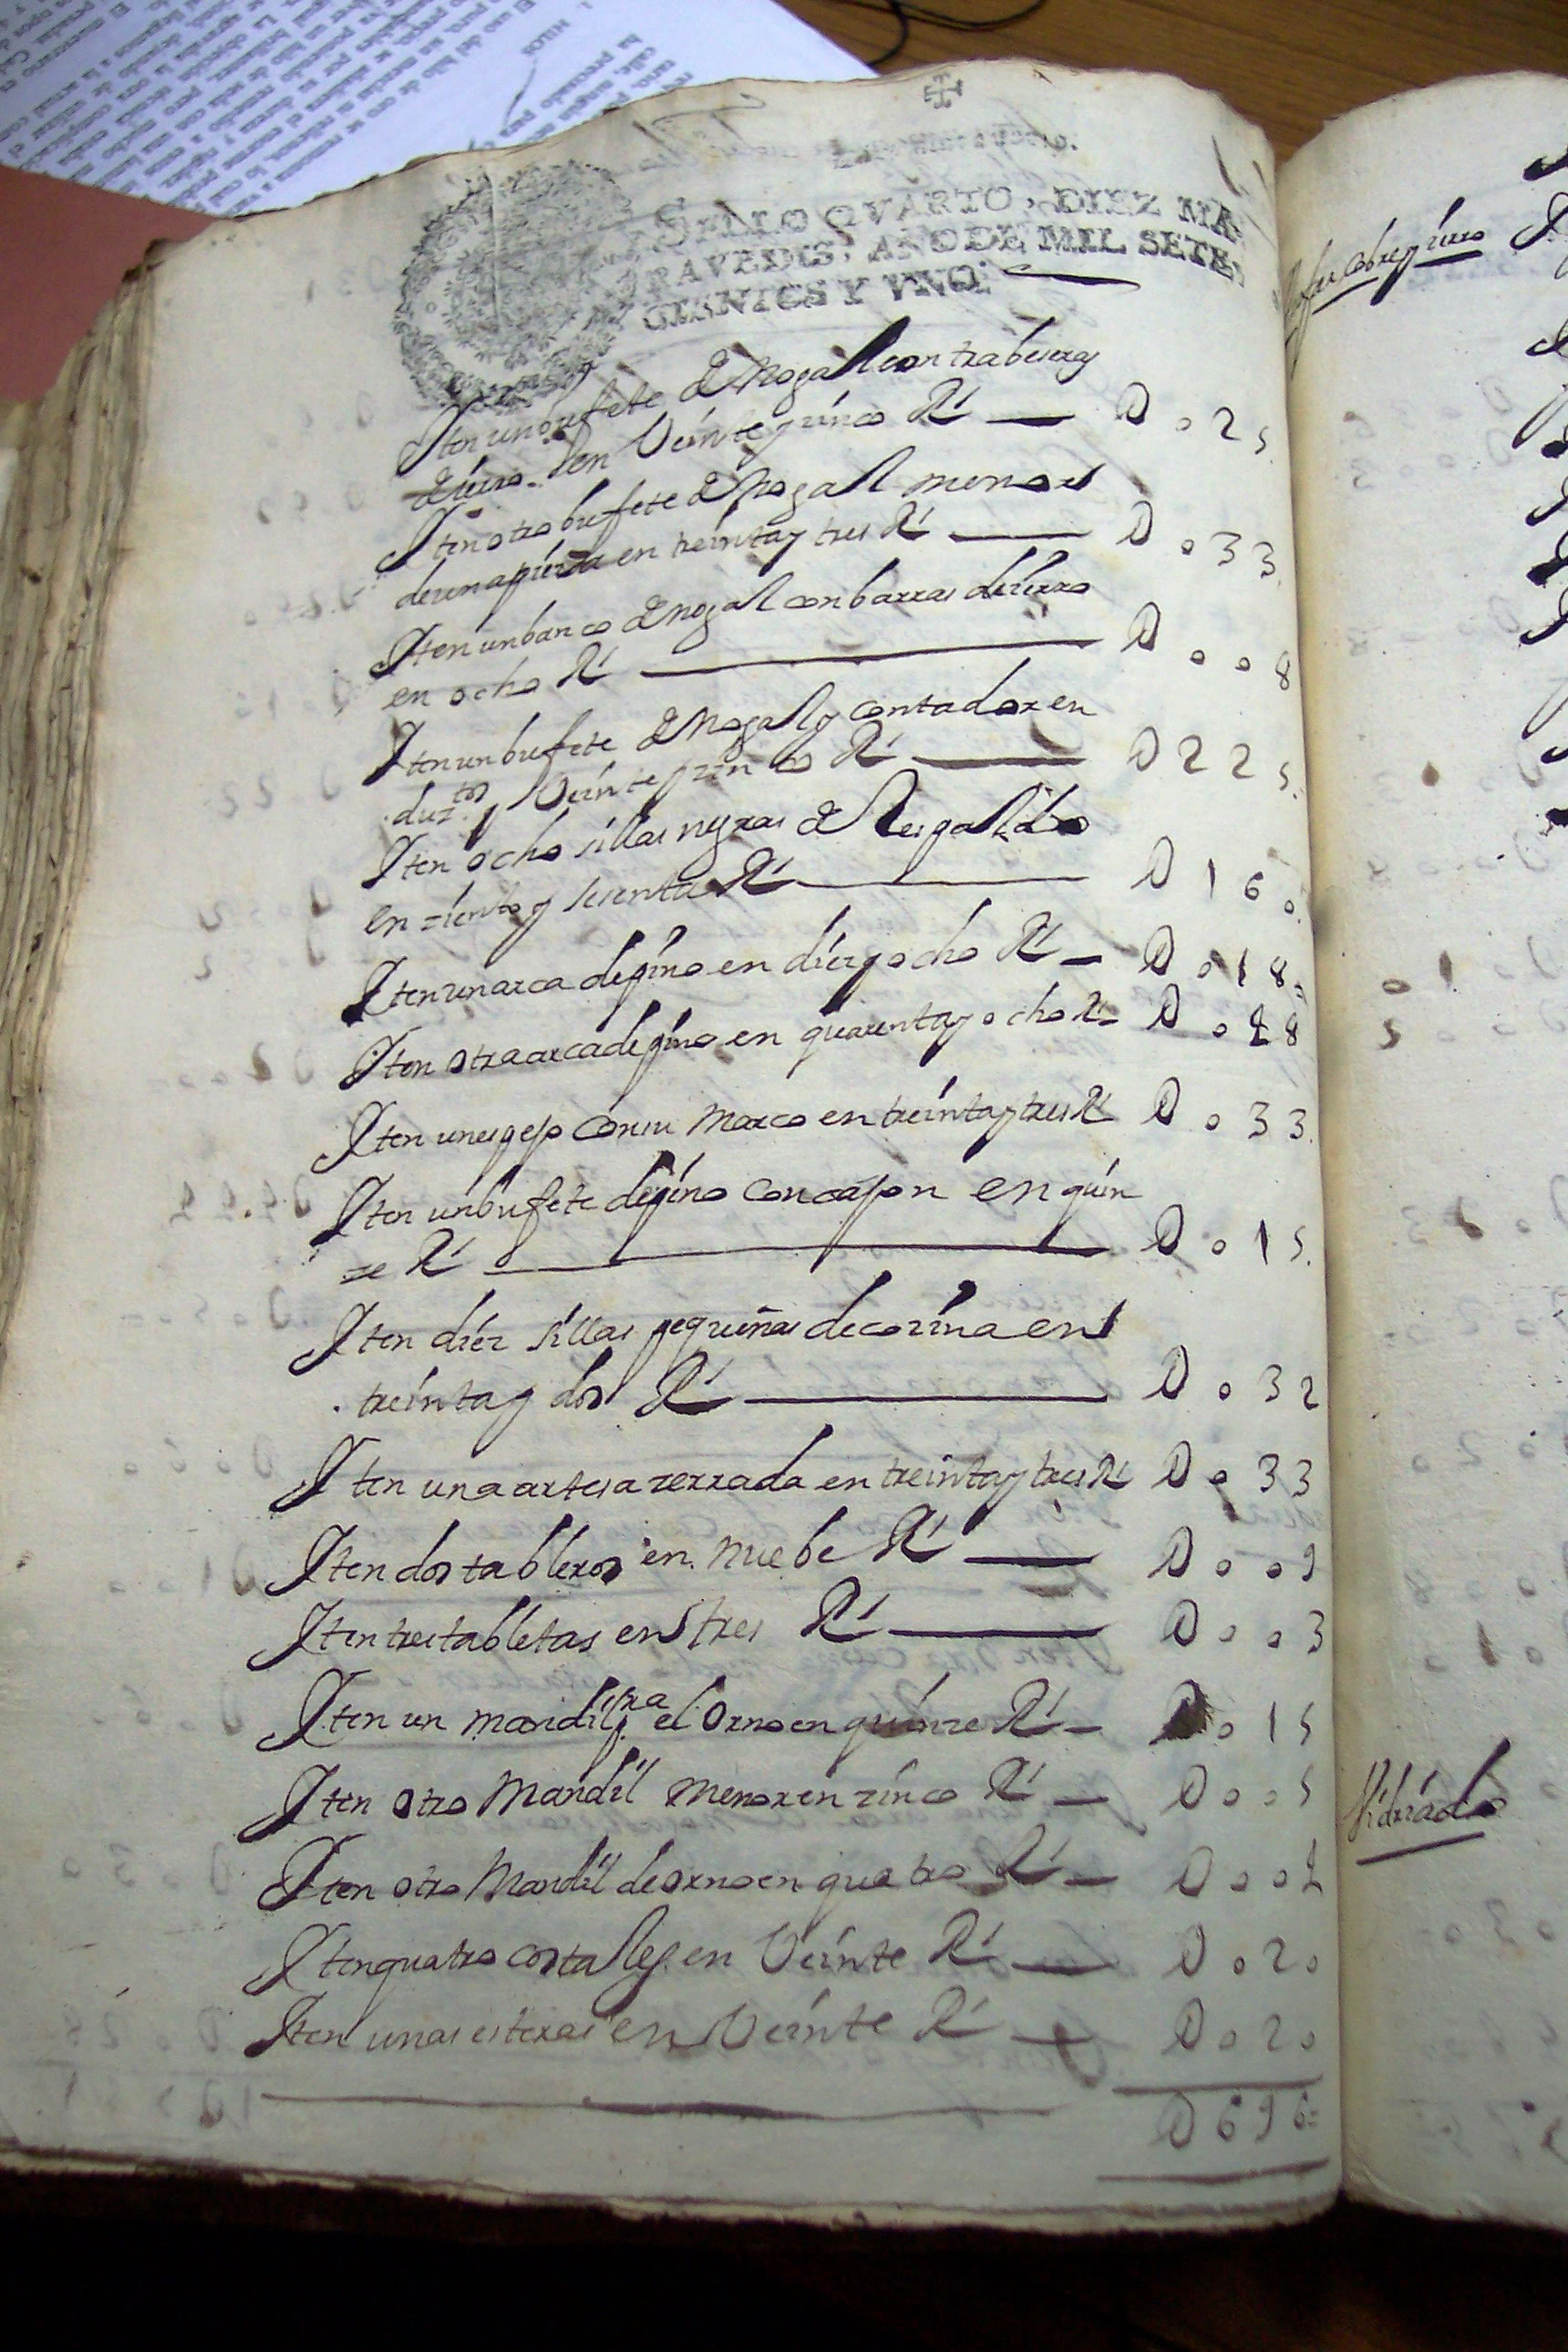 SELLO QVARTO, DIEZ MA-
RAVEDIS, AÑO DE MIL SETE-
CIENTOS Y VNO.
Iten un bufete de Nogal con trabesas
de ierro en Veinte y zinco Rs — D o 2 5
Iten otro bufete de Nogal menor
de una pieza en treinta y tres Rs — D o 3 3
Iten un banco de nogal con barras de ierro
en ocho Rs — D o o 8
Iten un bufete de Nogal y contador en
duztos y Veinte y zinco Rs — D 2 2 5
Iten ocho sillas negras de Respaldo
en ziento y sesenta Rs — D 1 6 o
Iten un arca de pino en diez y ocho Rs — D o 1 8
Iten otra arca de pino en quarenta y ocho Rs — D o 4 8
Iten un espejo con su Marco en treinta y tres Rs D o 3 3
Iten un bufete de pino con cajon en quin
ze Rs — D o 1 5
Iten diez sillas pequeñas de cozina en
treinta y dos Rs — D o 3 2
Iten una artesa zerrada en treinta y tres Rs D o 3 3
Iten dos tableros en nuebe Rs — D o o 9
Iten tres tabletas en tres Rs — D o o 3
Iten un mandil pra el Orno en quinze Rs — D o 1 5
Iten otro Mandil menor en zinco Rs — D o o 5
Iten otro Mandil de orno en quatro Rs — D o o 4
Iten quatro costales en Veinte Rs — D o 2 o
Iten unas esteras en Veinte Rs — D o 2 o
D 6 9 6
Vidriado